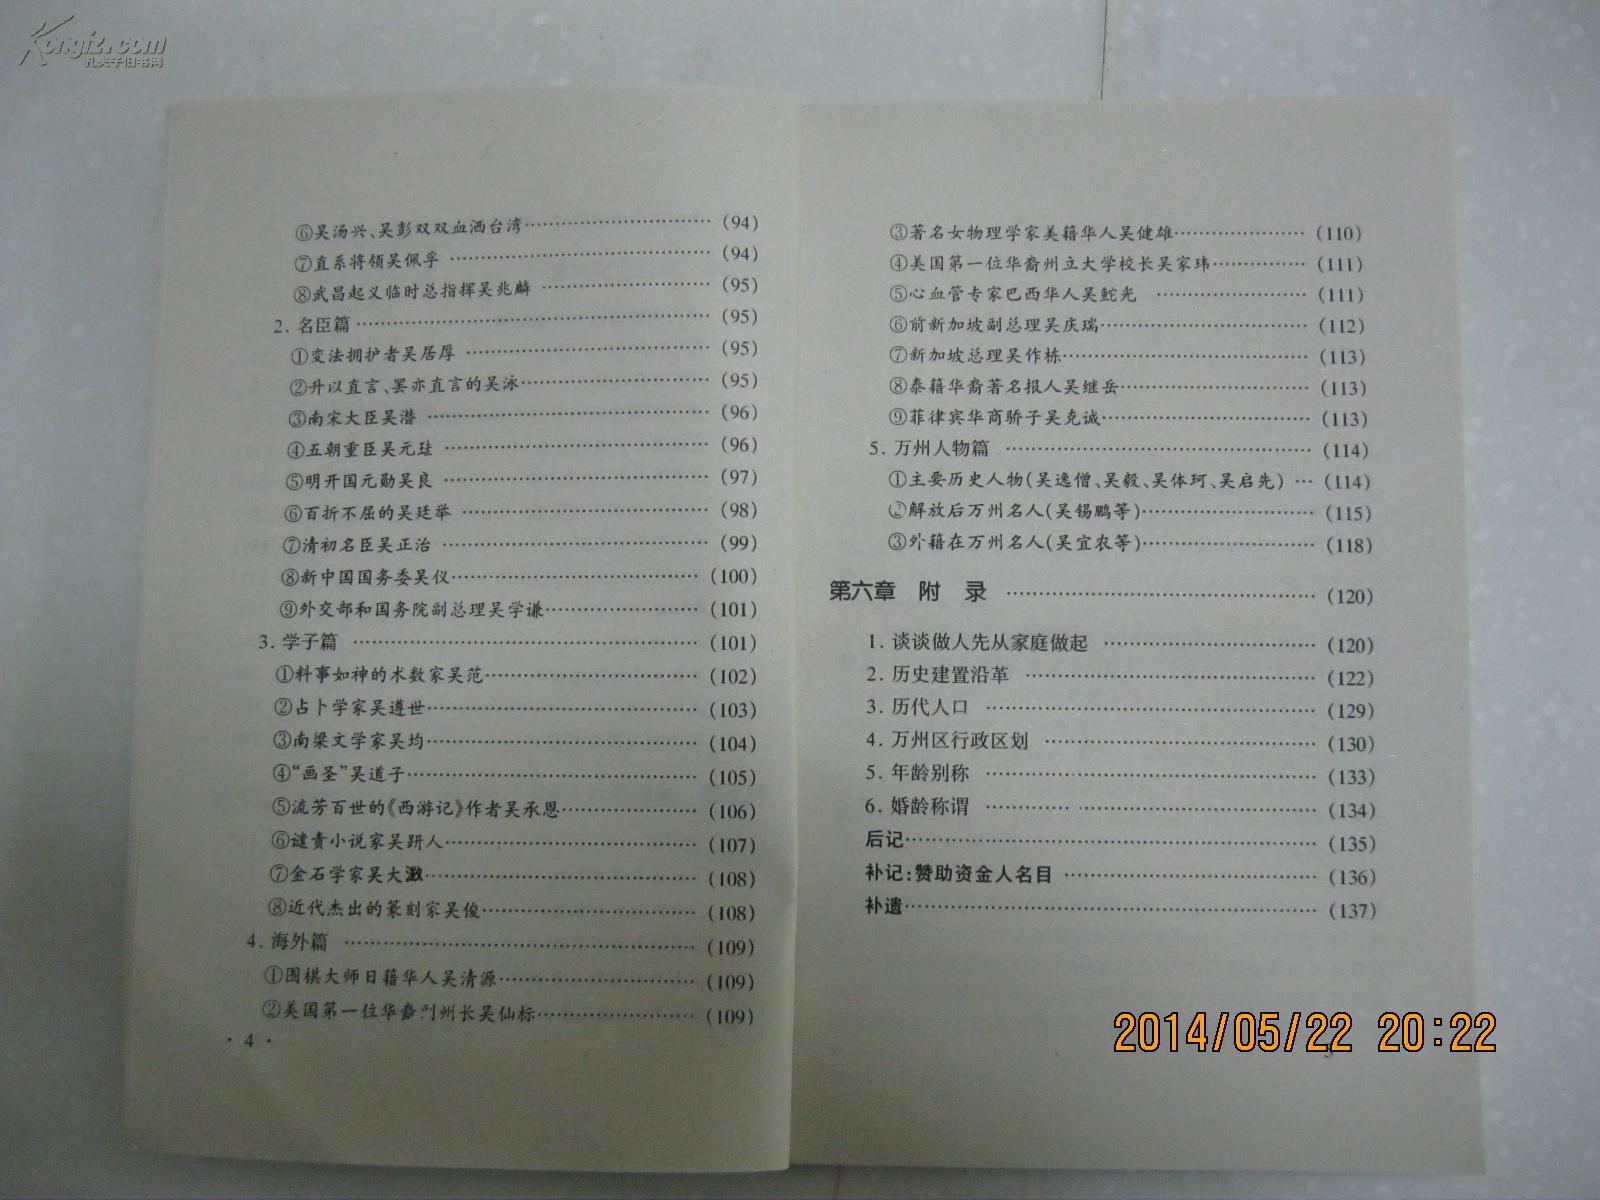 Kongfz.com
孔夫子旧书网
⑥吴汤兴、吴彭双双血洒台湾……(94)
⑦直系将领吴佩孚……(94)
⑧武昌起义临时总指挥吴兆麟……(95)
2. 名臣篇……(95)
①变法拥护者吴居厚……(95)
②升以直言、罢亦直言的吴泳……(95)
③南宋大臣吴潜……(96)
④五朝重臣吴元珪……(96)
⑤明开国元勋吴良……(97)
⑥百折不屈的吴廷举……(98)
⑦清初名臣吴正治……(99)
⑧新中国国务委吴仪……(100)
⑨外交部和国务院副总理吴学谦……(101)
3. 学子篇……(101)
①料事如神的术数家吴范……(102)
②占卜学家吴遵世……(103)
③南梁文学家吴均……(104)
④“画圣”吴道子……(105)
⑤流芳百世的《西游记》作者吴承恩……(106)
⑥谴责小说家吴趼人……(107)
⑦金石学家吴大……(108)
⑧近代杰出的篆刻家吴俊……(108)
4. 海外篇……(109)
①围棋大师日籍华人吴清源……(109)
②美国第一位华裔副州长吴仙标……(109)
· 4 ·
③著名女物理学家美籍华人吴健雄……(110)
④美国第一位华裔州立大学校长吴家玮……(111)
⑤心血管专家巴西华人吴鮀光……(111)
⑥前新加坡副总理吴庆瑞……(112)
⑦新加坡总理吴作栋……(113)
⑧泰籍华裔著名报人吴继岳……(113)
⑨菲律宾华商骄子吴克诚……(113)
5. 万州人物篇……(114)
①主要历史人物(吴逸僧、吴毅、吴体珂、吴启先)…(114)
②解放后万州名人(吴锡鹏等)……(115)
③外籍在万州名人(吴宜农等)……(118)
第六章 附 录……(120)
1. 谈谈做人先从家庭做起……(120)
2. 历史建置沿革……(122)
3. 历代人口……(129)
4. 万州区行政区划……(130)
5. 年龄别称……(133)
6. 婚龄称谓……(134)
后记……(135)
补记:赞助资金人名目……(136)
补遗……(137)
2014/05/22 20:22